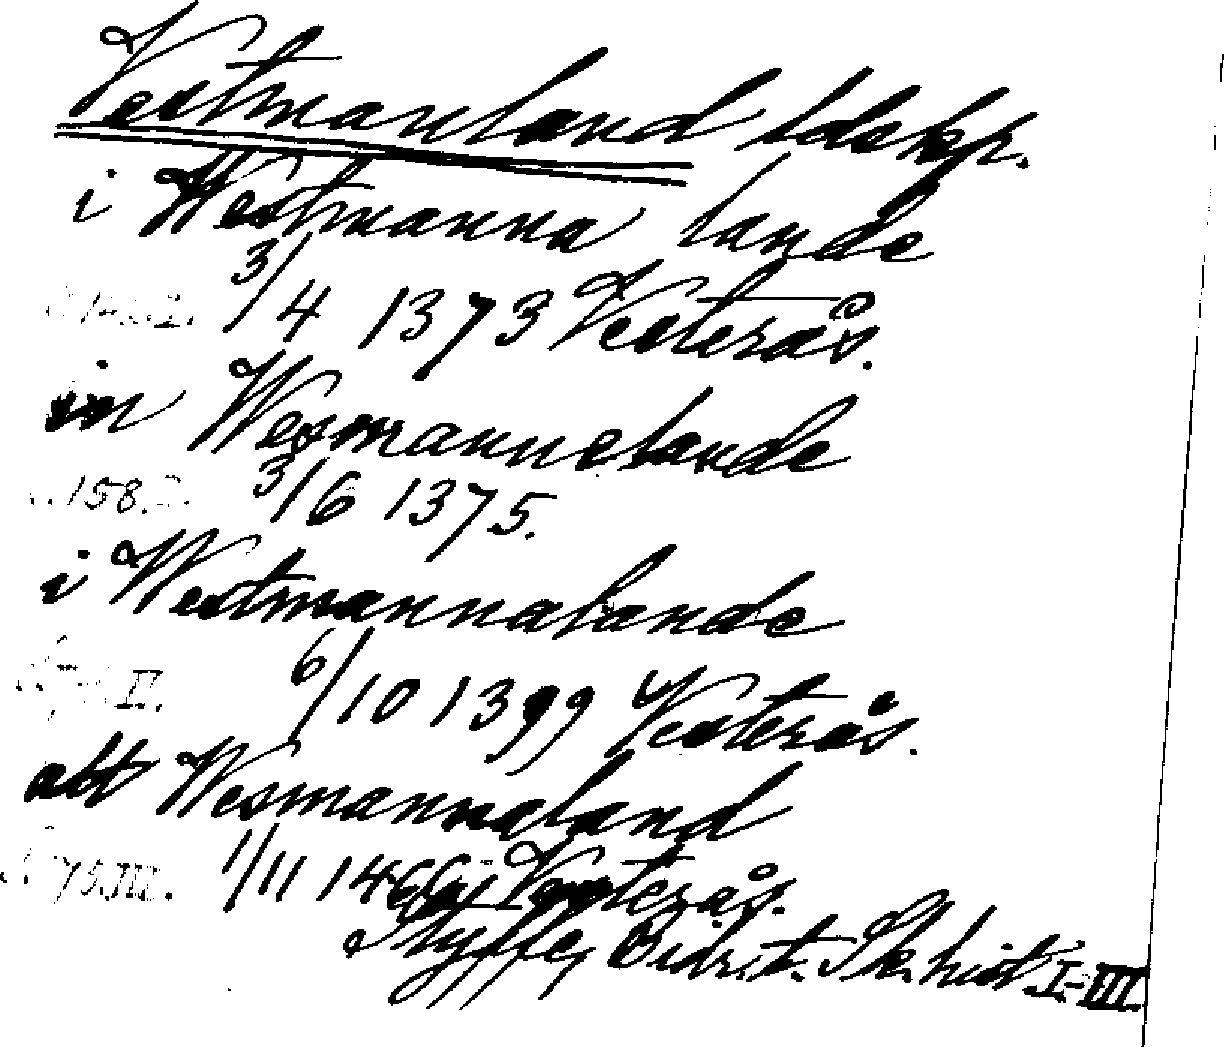 Vestmanland ldskp.
i Westmanna lande
3/4 1373 Vesterås.
in Wesmannelande
158. 3/6 1375.
i Westmannalande
II. 6/10 1399 Vesterås.
att Wesmannaland
75.III. 1/11 1466, Vesterås.
Styffe, Bidr.t. Sk. hist. I-III.